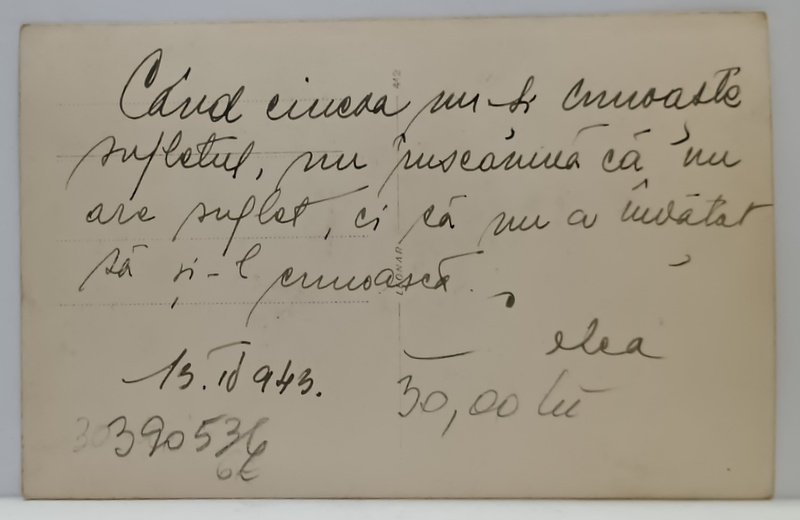 Când cineva nu-și cunoaște
sufletul, nu înseamnă că nu
are suflet, ci că nu a învățat
să și-l cunoască.
elea
13.IV 943.
30,00 lei
390536
6E
LEONAR